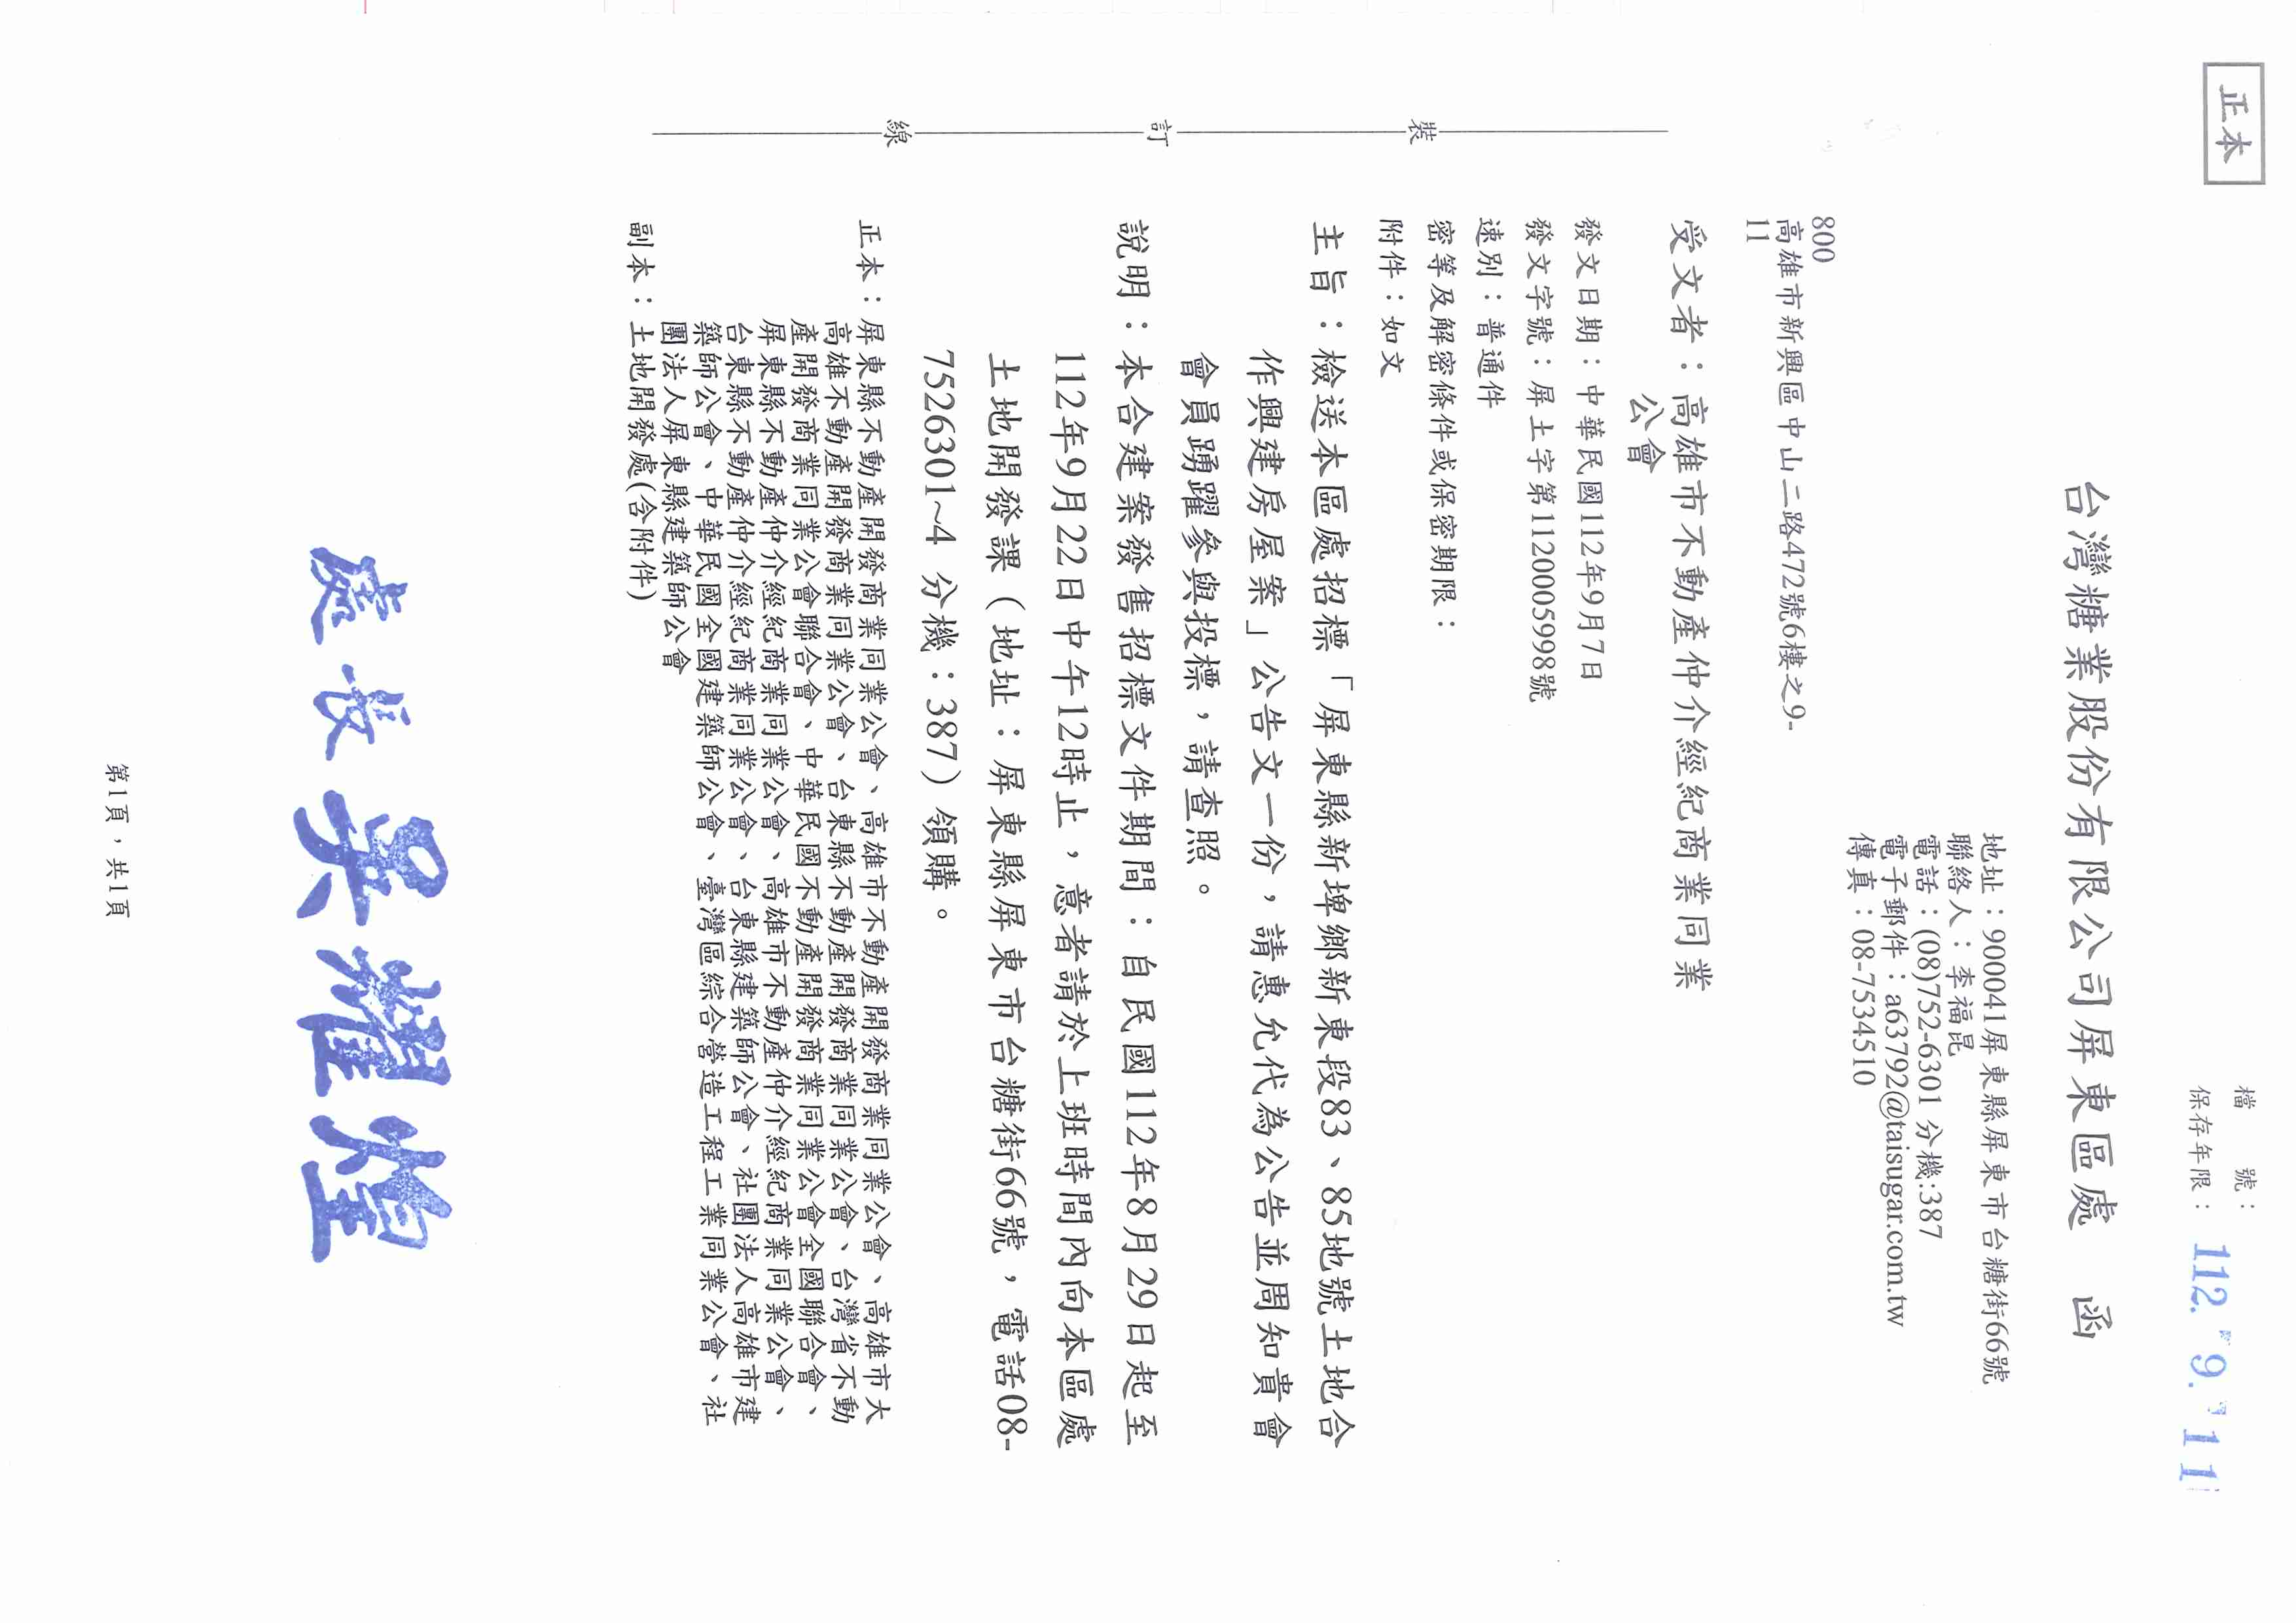 正本
檔 號：
保存年限：
112. 9. 11
台灣糖業股份有限公司屏東區處 函
地址：900041屏東縣屏東市台糖街66號
聯絡人：李福昆
電話：(08)752-6301 分機:387
電子郵件：a63792@taisugar.com.tw
傳真：08-7534510
800
高雄市新興區中山二路472號6樓之9-
11
受文者：高雄市不動產仲介經紀商業同業
公會
發文日期：中華民國112年9月7日
發文字號：屏土字第1120005998號
速別：普通件
密等及解密條件或保密期限：
附件：如文
主旨：檢送本區處招標「屏東縣新埤鄉新東段83、85地號土地合
作興建房屋案」公告文一份，請惠允代為公告並周知貴會
會員踴躍參與投標，請查照。
說明：本合建案發售招標文件期間：自民國112年8月29日起至
112年9月22日中午12時止，意者請於上班時間內向本區處
土地開發課（地址：屏東縣屏東市台糖街66號，電話08-
7526301~4 分機：387）領購。
正本：屏東縣不動產開發商業同業公會、高雄市不動產開發商業同業公會、高雄市大
高雄不動產開發商業同業公會、台東縣不動產開發商業同業公會、台灣省不動
產開發商業同業公會聯合會、中華民國不動產開發商業同業公會全國聯合會、
屏東縣不動產仲介經紀商業同業公會、高雄市不動產仲介經紀商業同業公會、
台東縣不動產仲介經紀商業同業公會、台東縣建築師公會、社團法人高雄市建
築師公會、中華民國全國建築師公會、臺灣區綜合營造工程工業同業公會、社
團法人屏東縣建築師公會
副本：土地開發處(含附件)
處長吳耀煌
裝
訂
線
第1頁，共1頁